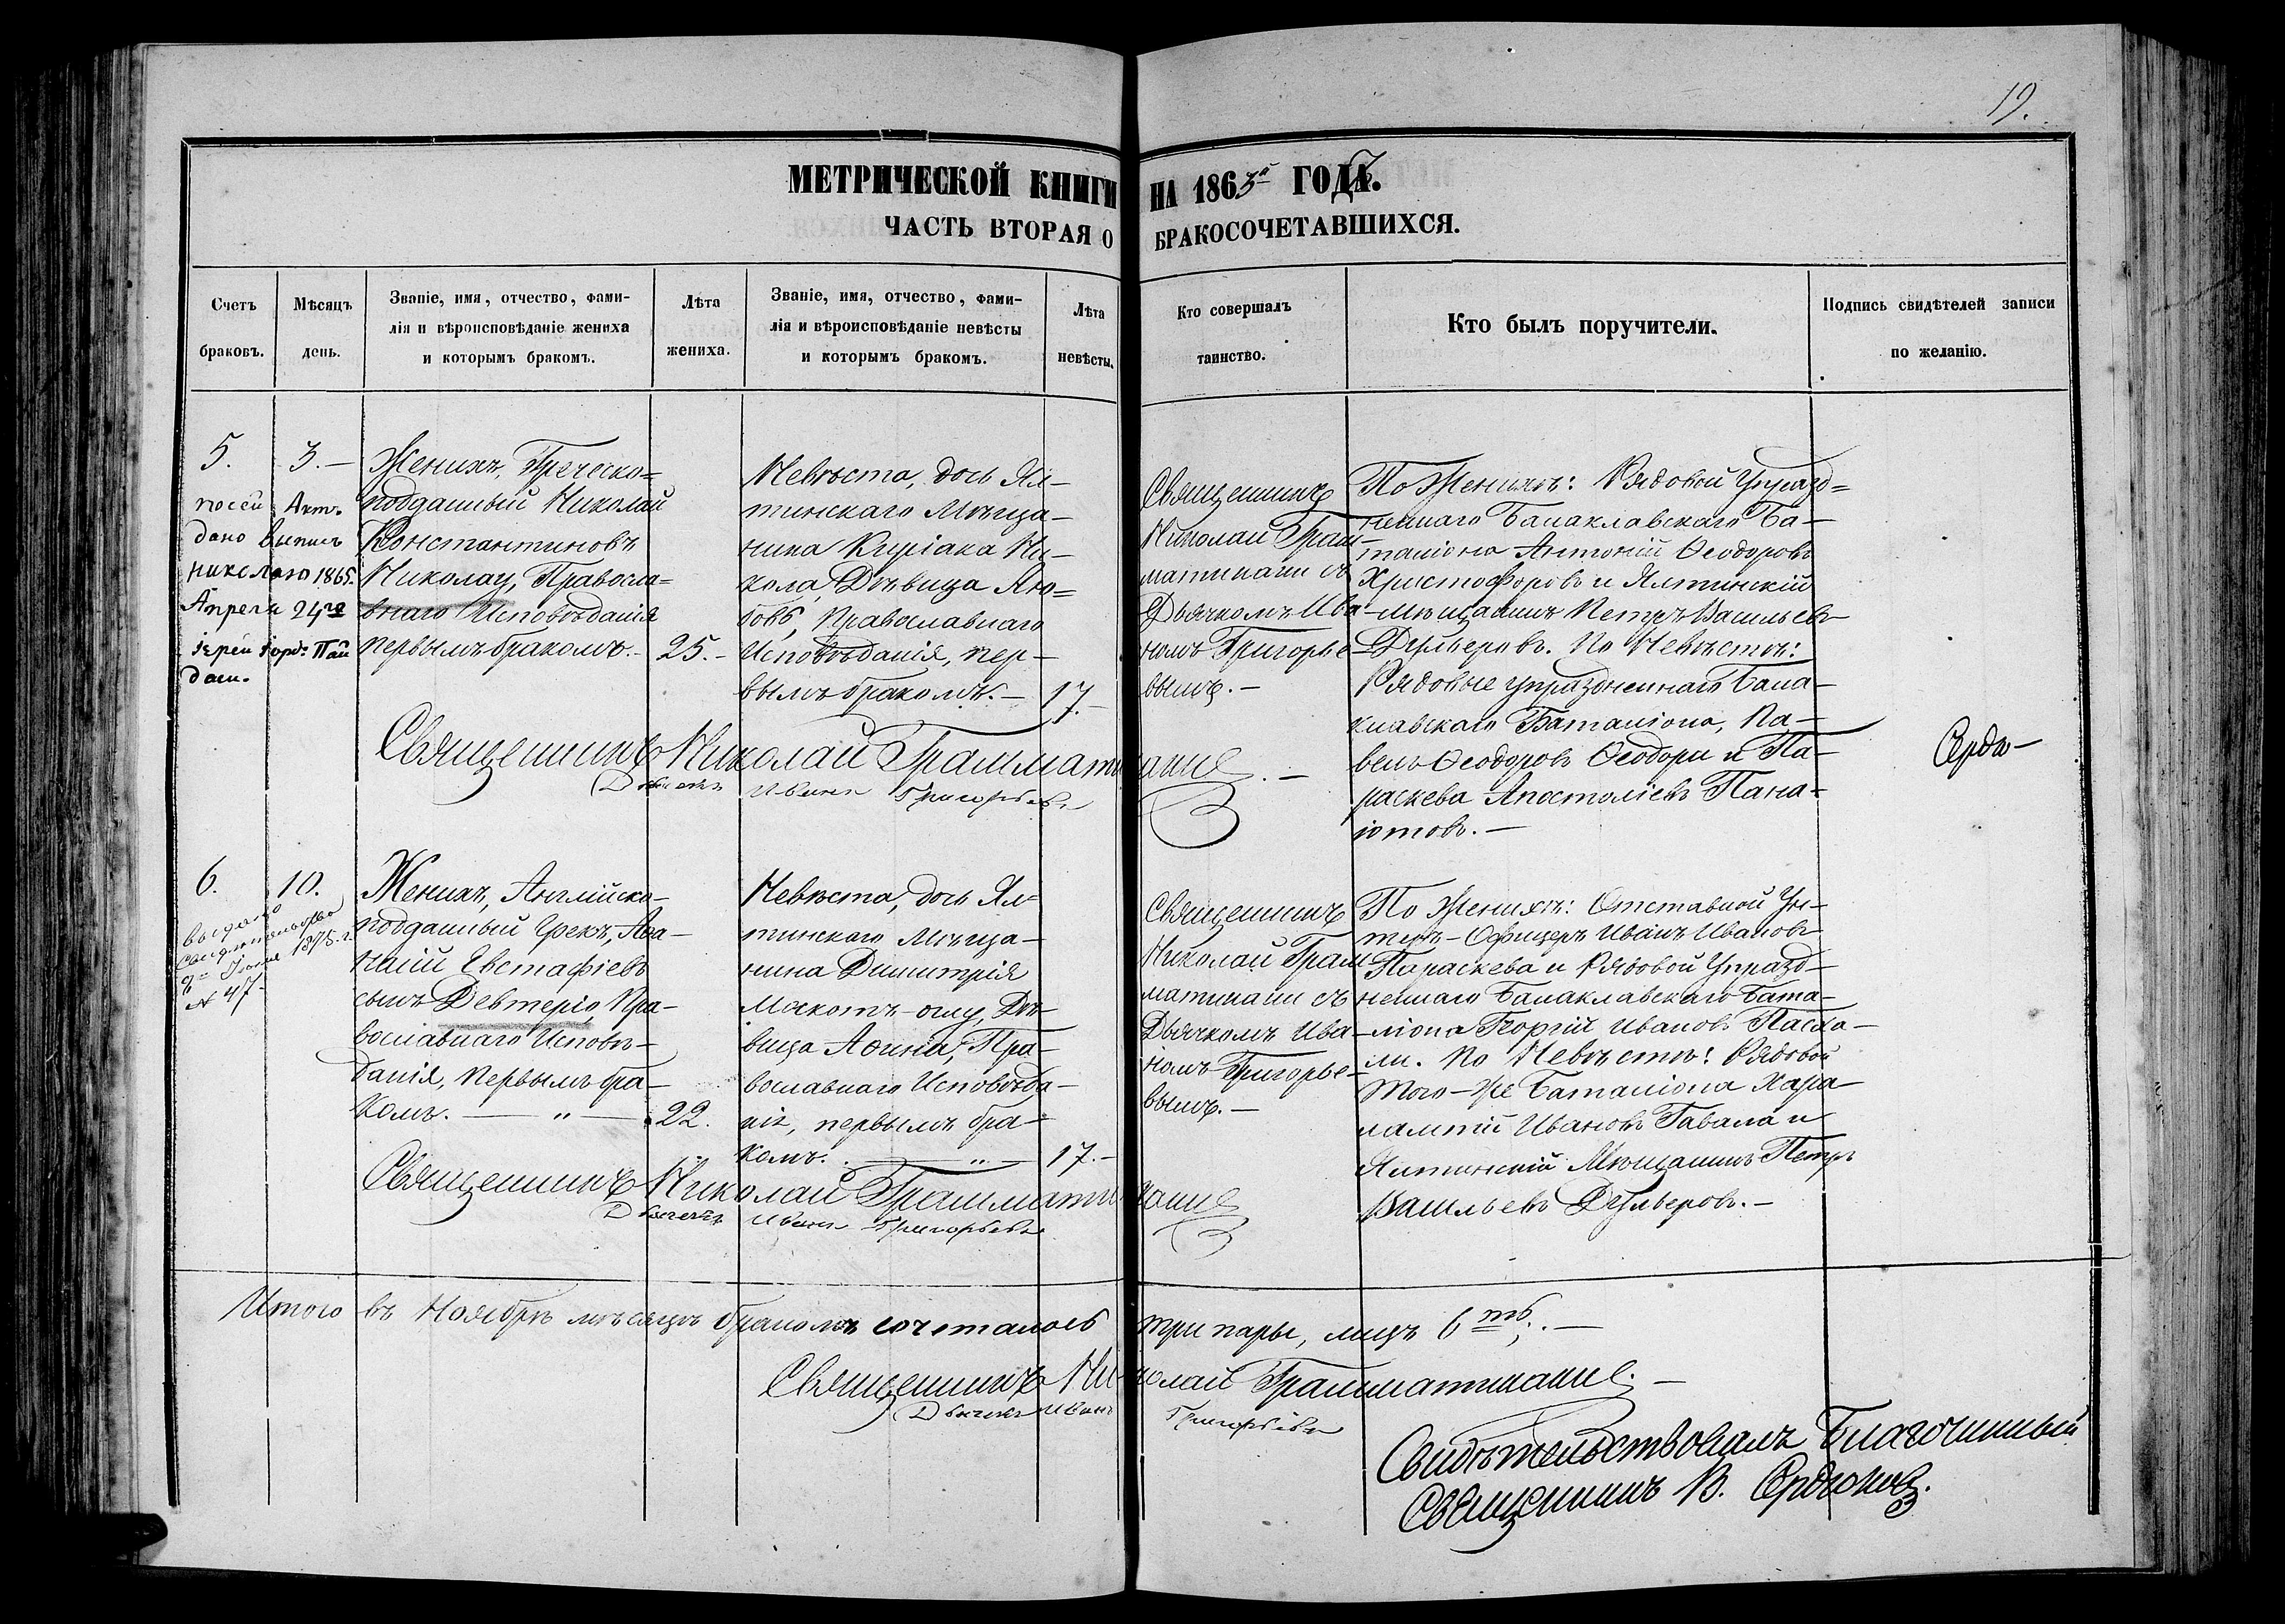 19.
МЕТРИЧЕСКОЙ КНИГИ НА 1863й ГОДЪ.
ЧАСТЬ ВТОРАЯ О БРАКОСОЧЕТАВШИХСЯ.
Счетъ браковъ.
Мѣсяцъ день.
Званіе, имя, отчество, фами-
лія и вѣроисповѣданіе жениха
и которымъ бракомъ.
Лѣта
жениха.
Званіе, имя, отчество, фами-
лія и вѣроисповѣданіе невѣсты
и которымъ бракомъ.
Лѣта
невѣсты.
Кто совершалъ
таинство.
Кто былъ поручители.
Подпись свидѣтелей записи
по желанію.
5.
3.—
по сей Акт.
дано выпись
1865.
Апреля 24го
іерей
Женихъ, Греческо=
подданный Николай
Константиновъ
Николау, Правосла=
внаго Исповѣданія
первымъ бракомъ.—
25.—
Невѣста, дочь Ял—
тинскаго Мѣща—
нина Куріака Ни—
кола, Дѣвица Лю=
бовь, Православнаго
Исповѣданія, пер—
вымъ бракомъ.—
17.—
Священникъ
Николай Грам—
матикаки съ
Дьячкомъ Ива—
номъ Григорье—
вымъ.—
По Женихѣ: Рядовой Упразд=
неннаго Балаклавскаго Ба—
таліона Антоній Ѳеодоровъ
Христофоровъ и Ялтинскій
Мѣщанинъ Петръ Васильевъ
Дульверовъ. По Невѣстѣ:
Рядовые упраздненнаго Бала—
клавскаго Баталіона, Па—
велъ Ѳеодоровъ Ѳеодори и Па—
раскева Апостоліевъ Пана—
іотовъ.—
Священникъ Николай Грамматикаки.—
Дьячекъ Иванъ Григорьевъ
Сердю—
6.
10.
выдано
Свидѣтельство
Іюня 1875 г.
№ 47
Женихъ, Англійско—
подданный Грекъ, Аѳа—
насій Евстафіевъ
сынъ Девтеріо, Пра—
вославнаго Исповѣ—
данія, первымъ бра—
комъ. — „ —
22.
Невѣста, дочь Ял=
тинскаго Мѣща—
нина Димитрія
Москотъ-оглу, Дѣ—
вица Аѳина, Пра—
вославнаго Исповѣда—
нія, первымъ бра—
комъ. — „ —
17.—
Священникъ
Николай Грам
матикаки съ
Дьячкомъ Ива—
номъ Григорье—
вымъ.—
По Женихѣ: Отставной Ун—
теръ-Офицеръ Иванъ Ивановъ
Параскева и Рядовой Упразд—
неннаго Балаклавскаго Бата—
ліона Георгій Ивановъ Пасха—
ли. По Невѣстѣ: Рядовой
того-же Баталіона Хара—
лампій Ивановъ Гавала и
Ялтинскій Мѣщанинъ Петръ
Васильевъ Дульверовъ.—
Священникъ Николай Грамматикаки
Дьячекъ Иванъ Григорьевъ
Итого въ Ноябрѣ мѣсяцѣ бракомъ сочеталось три пары, лицъ 6ть.—
Священникъ Николай Грамматикаки.—
Дьячекъ Иванъ Григорьевъ
Свидѣтельствовалъ Благочинный
Священникъ В. Сердюковъ.